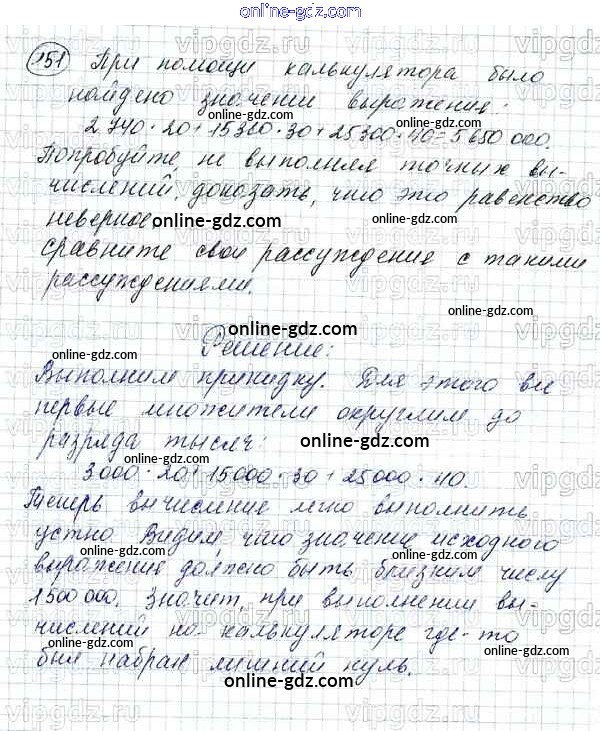 online-gdz.com
151 При помощи калькулятора было
найдено значении выражения:
2 740 · 20 + 15 360 · 30 + 25 300 · 40 = 5 650 000.
Попробуйте не выполняя точных вы-
числений, доказать, что это равенство
неверное
online-gdz.com
сравните свои рассуждения с такими
рассуждениями.
online-gdz.com
online-gdz.com
Решение:
online-gdz.com
Выполним прикидку. Для этого все
первые множители округлим до
online-gdz.com
разряда тысяч:
online-gdz.com
3 000 · 20 + 15 000 · 30 + 25 000 · 40.
Теперь вычисление легко выполнить
online-gdz.com
устно Видим, что значение исходного
online-gdz.com
выражения должно быть близким числу
online-gdz.com
1500 000. Значит, при выполнении вы-
числений на калькуляторе где-то
online-gdz.com
был набран лишний нуль.
online-gdz.com
vipgdz.ru